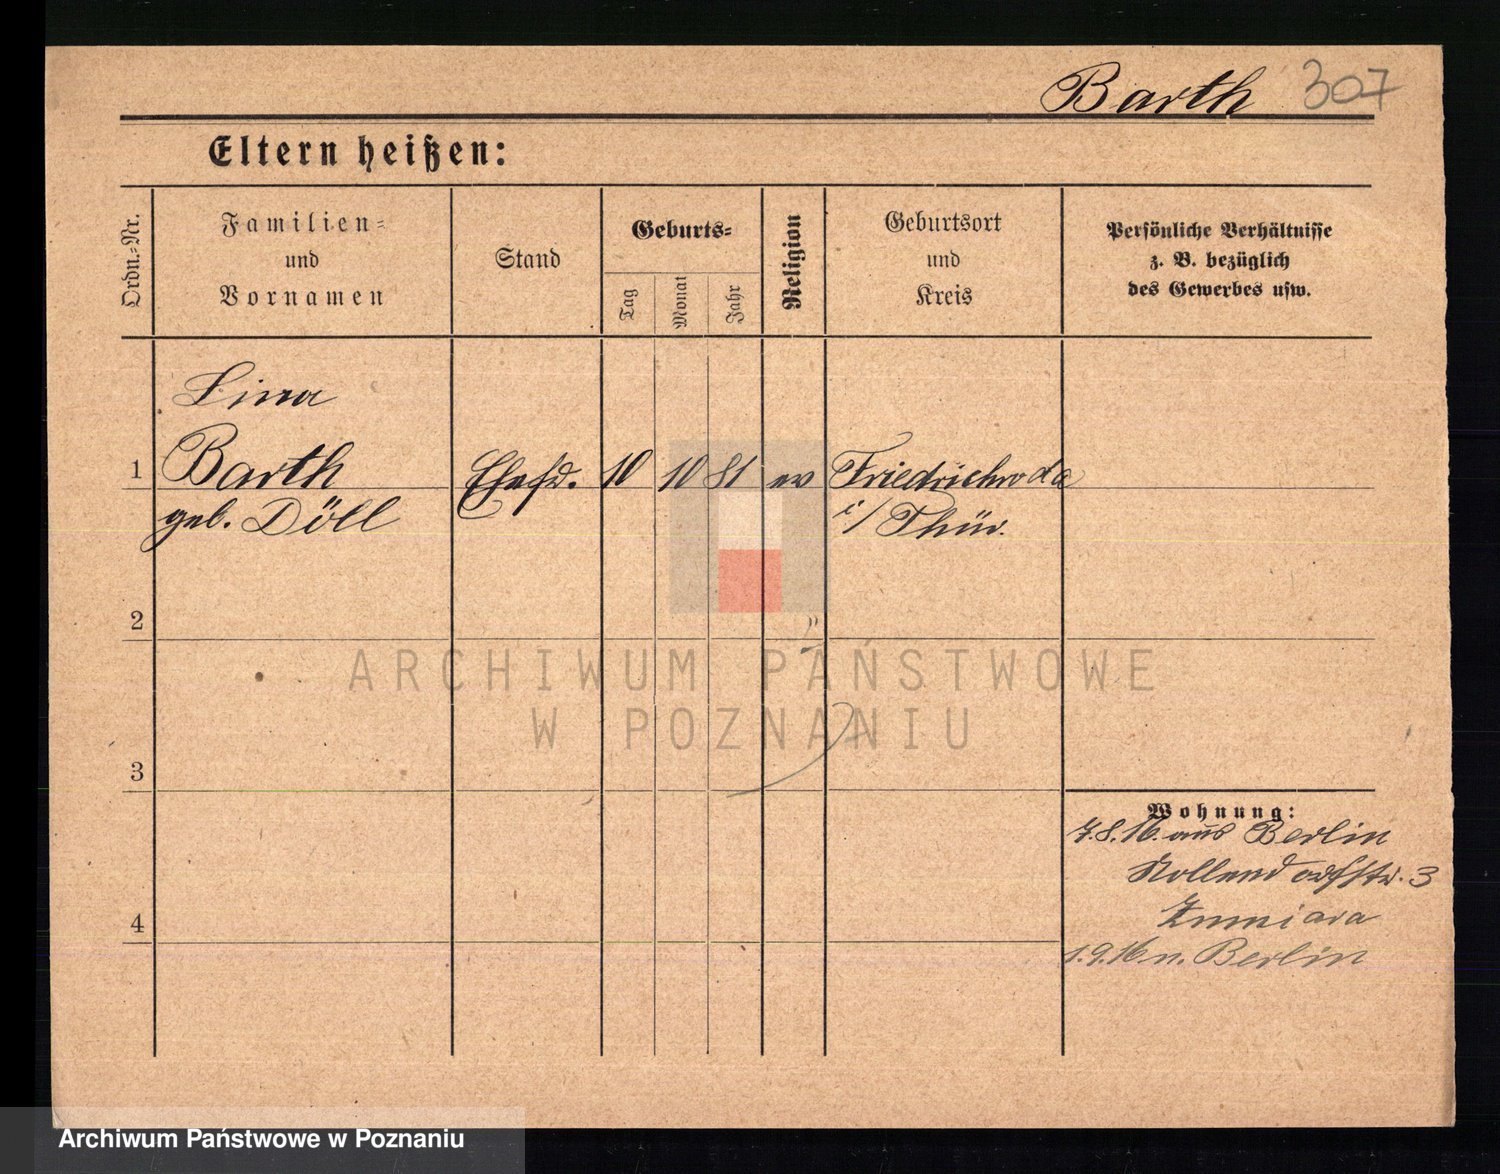 Barth 307
Eltern heißen:
Ordn.-Nr.
Familien-
und
Vornamen
Stand
Geburts-
Tag
Monat
Jahr
Religion
Geburtsort
und
Kreis
Persönliche Verhältnisse
z. B. bezüglich
des Gewerbes usw.
Lina
1 Barth Ehefr. 10 10 81 ev Friedrichroda
geb. Döll i/ Thür.
2
3
4
Wohnung:
7.8.16. aus Berlin
3
1.9.16 n. Berlin
ARCHIWUM PAŃSTWOWE
W POZNANIU
Archiwum Państwowe w Poznaniu